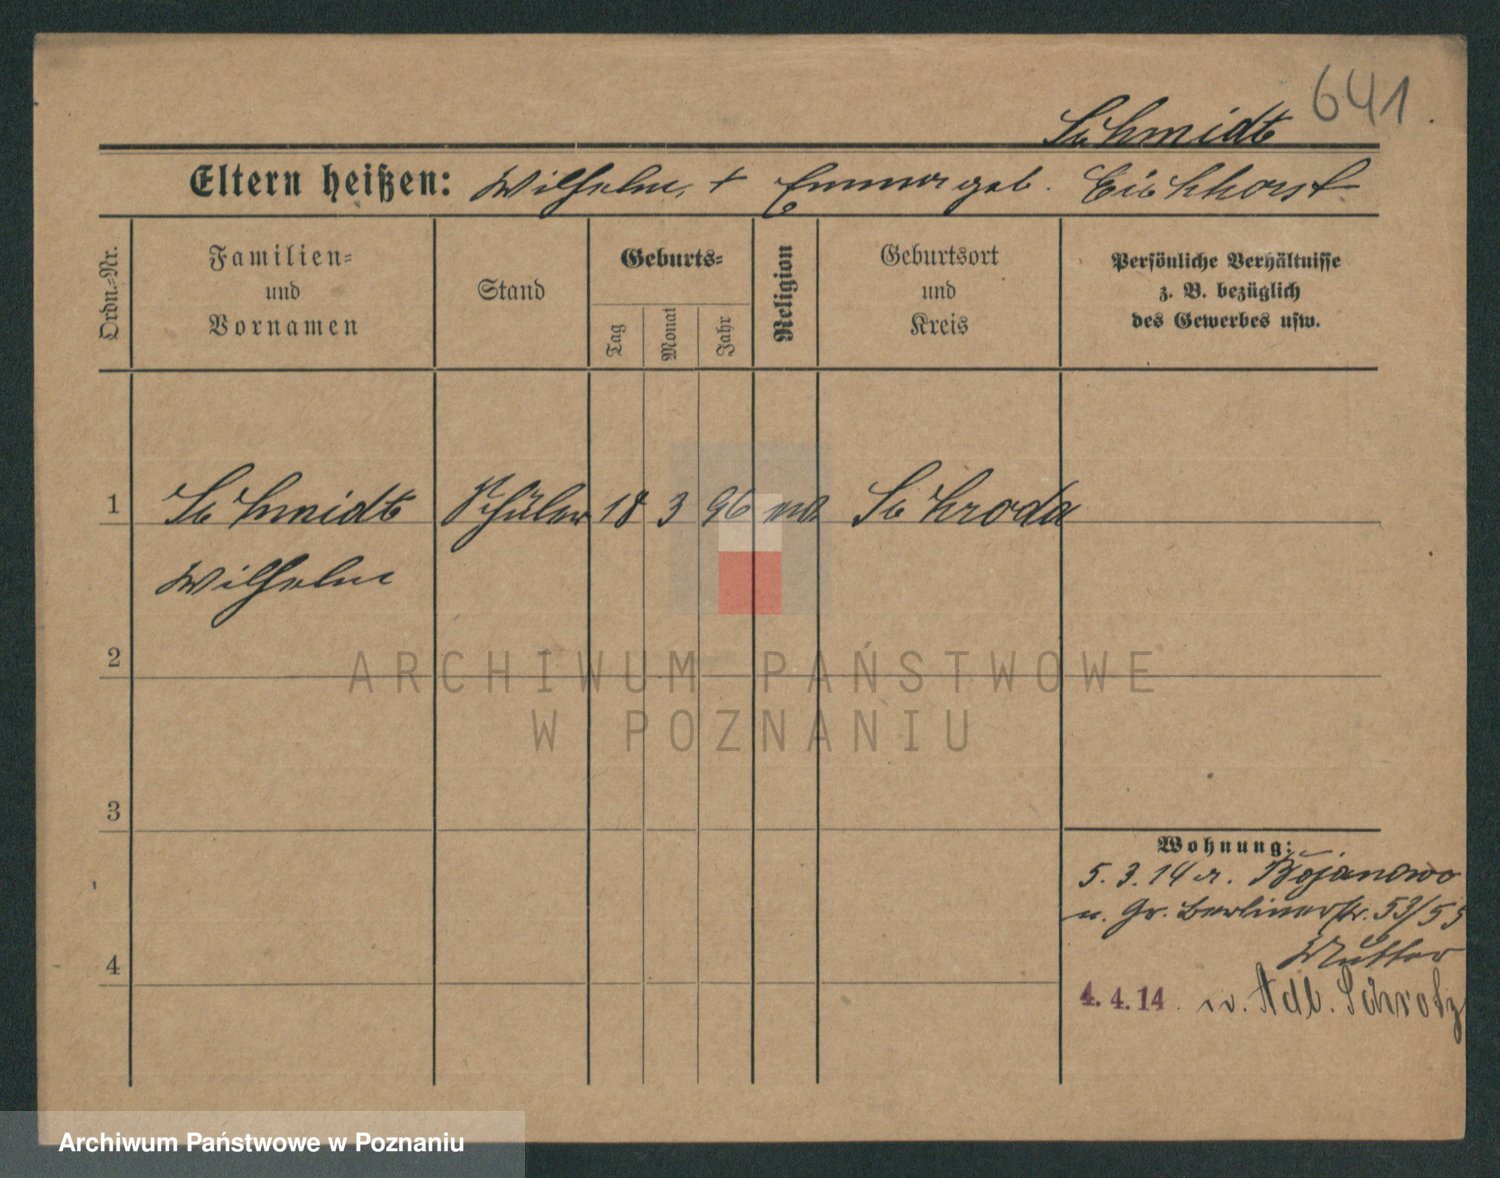 641.
Schmidt
Eltern heißen: Wilhelm, + Emma geb. Eichhorst
Ordn.-Nr.
Familien-
und
Vornamen
Stand
Geburts-
Tag
Monat
Jahr
Religion
Geburtsort
und
Kreis
Persönliche Verhältnisse
z. B. bezüglich
des Gewerbes usw.
1 Schmidt Schüler 18 3 96 Schroda
Wilhelm
2
ARCHIWUM PAŃSTWOWE
W POZNANIU
3
Wohnung:
5.3.14 v. Bojanowo
n. Gr. Berlinerstr. 53/55
Mutter
4
4.4.14 Adb. Schrotz
Archiwum Państwowe w Poznaniu